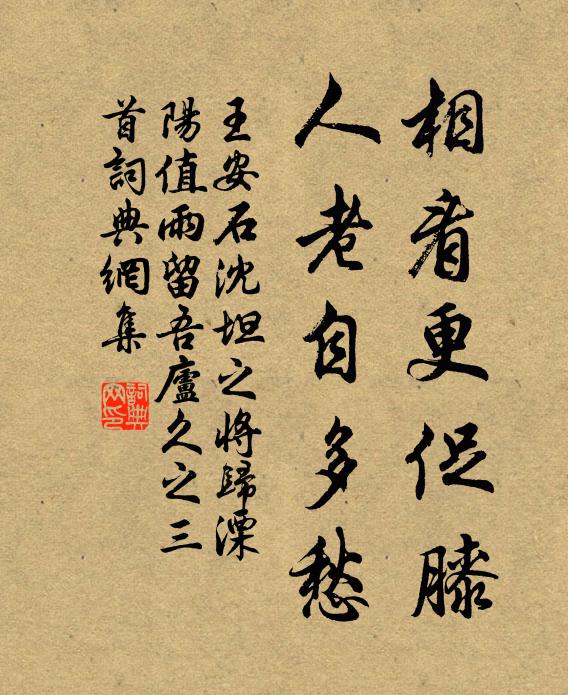 相看更促膝
人老自多愁
王安石沈坦之將歸溧
陽值雨留吾廬久之三
首詞典網集
詞典
网印